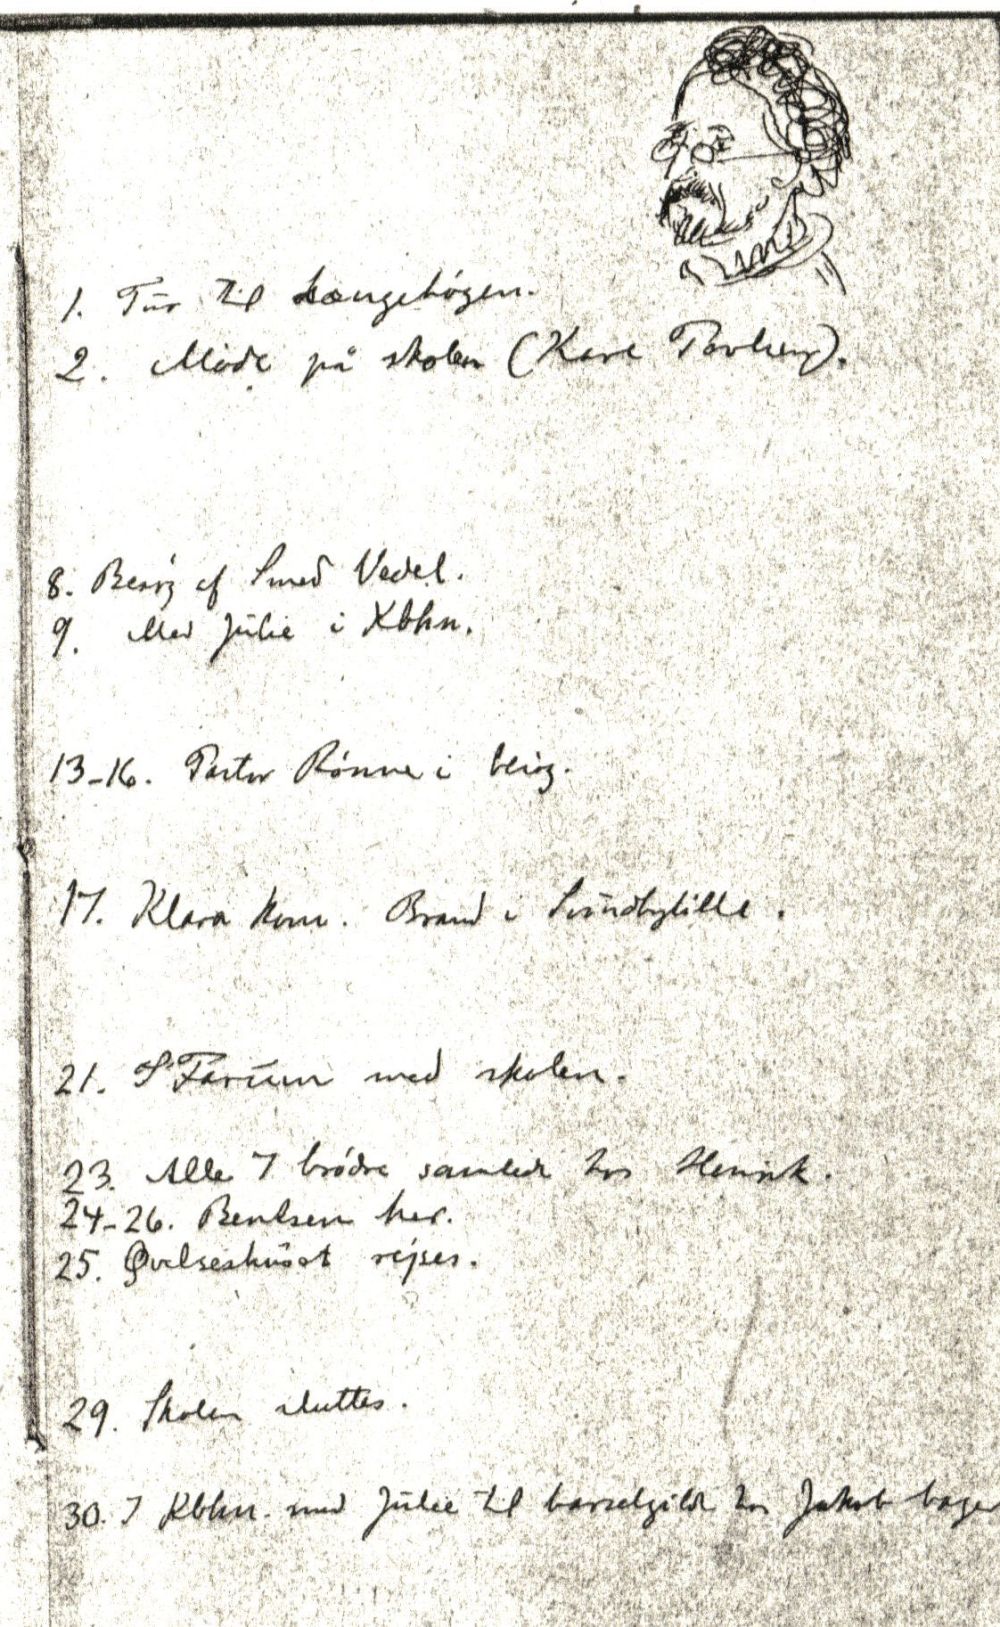 1. Tur til
2. Møde på skolen (Karl
8. Besøg af Smed Vedel.
9. Med Julie i Kbhn.
13-16. Pastor Rønne i besøg.
17. Klara kom. Brand i Sundbylille.
21. I Farum med skolen.
23. Alle 7 brødre samlede hos Henrik.
24-26. Bentsen her.
25. Øvelseshuset rejses.
29. Skolen sluttes.
30. I Kbhn. med Julie til barselgilde hos Jakob bager